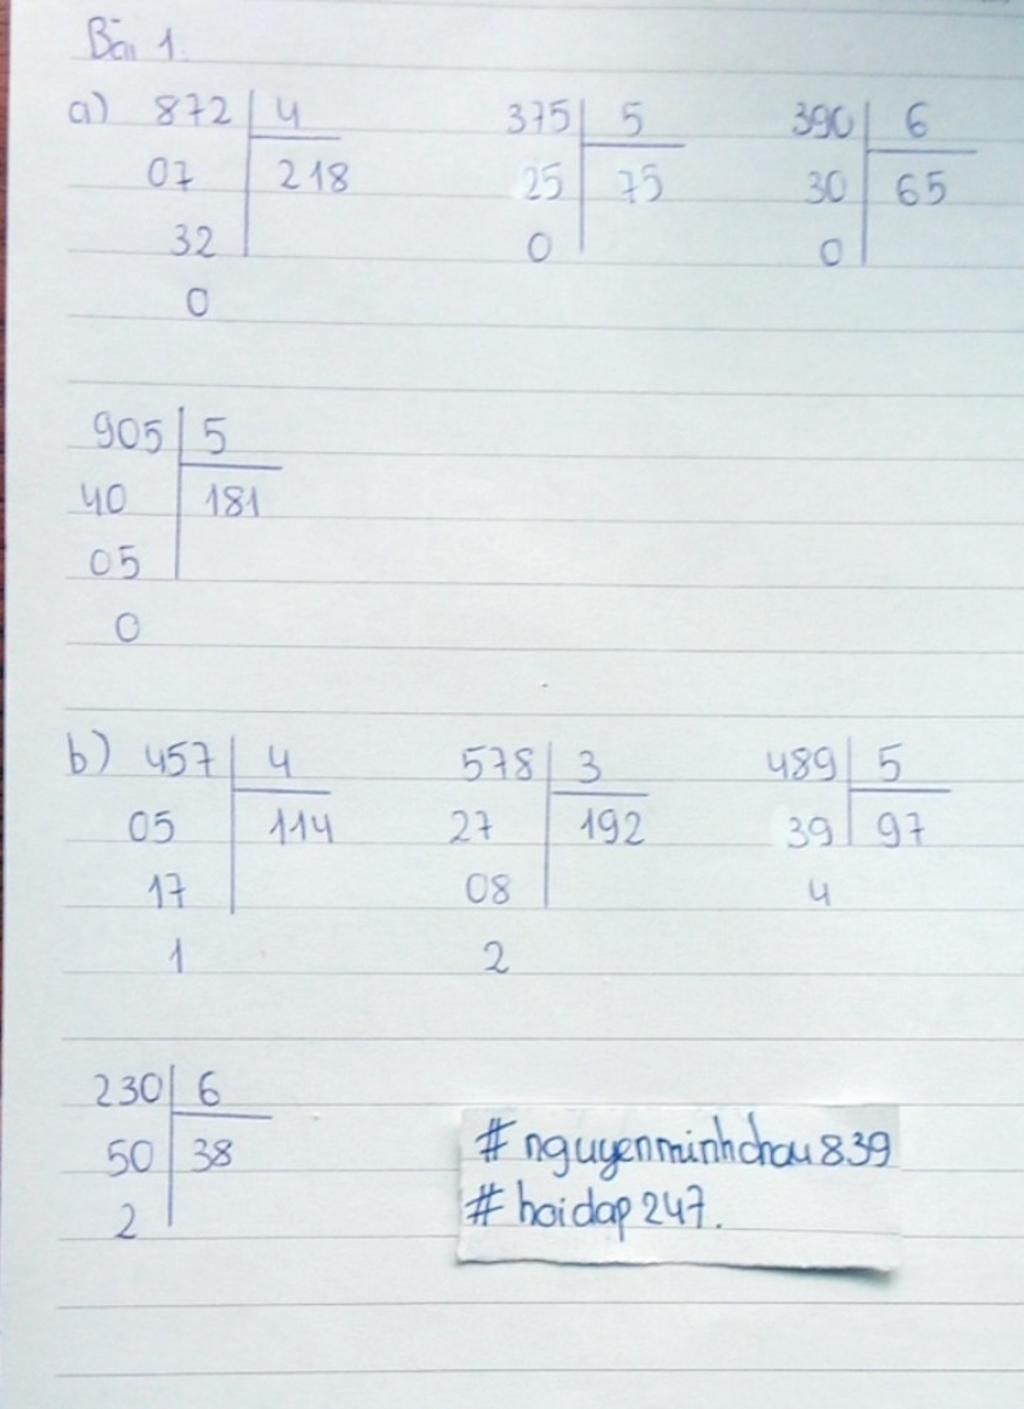 Bài 1.
a) 872 4 375 5 390 6
07 218 25 75 30 65
32 0 0
0
905 5
40 181
05
0
b) 457 4 578 3 489 5
05 114 27 192 39 97
17 08 4
1 2
230 6
50 38
2
# nguyenminhchau839
# hoidap247.